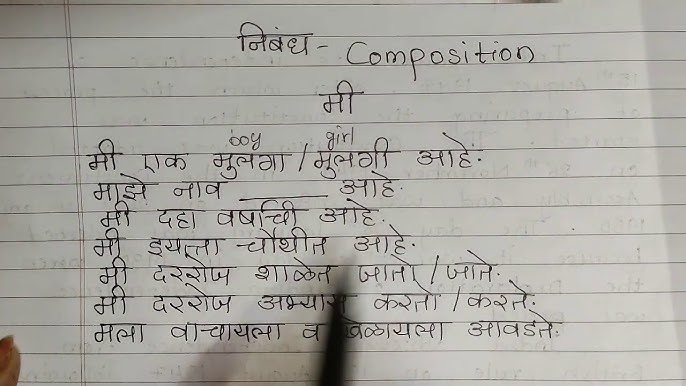 निबंध - Composition
मी
boy girl
मी एक मुलगा / मुलगी आहे.
माझे नाव ______ आहे.
मी दहा वर्षाची आहे.
मी इयत्ता चौथीत आहे.
मी दररोज शाळेत जातो / जाते.
मी दररोज अभ्यास करतो / करते.
मला वाचायला व खेळायला आवडते.